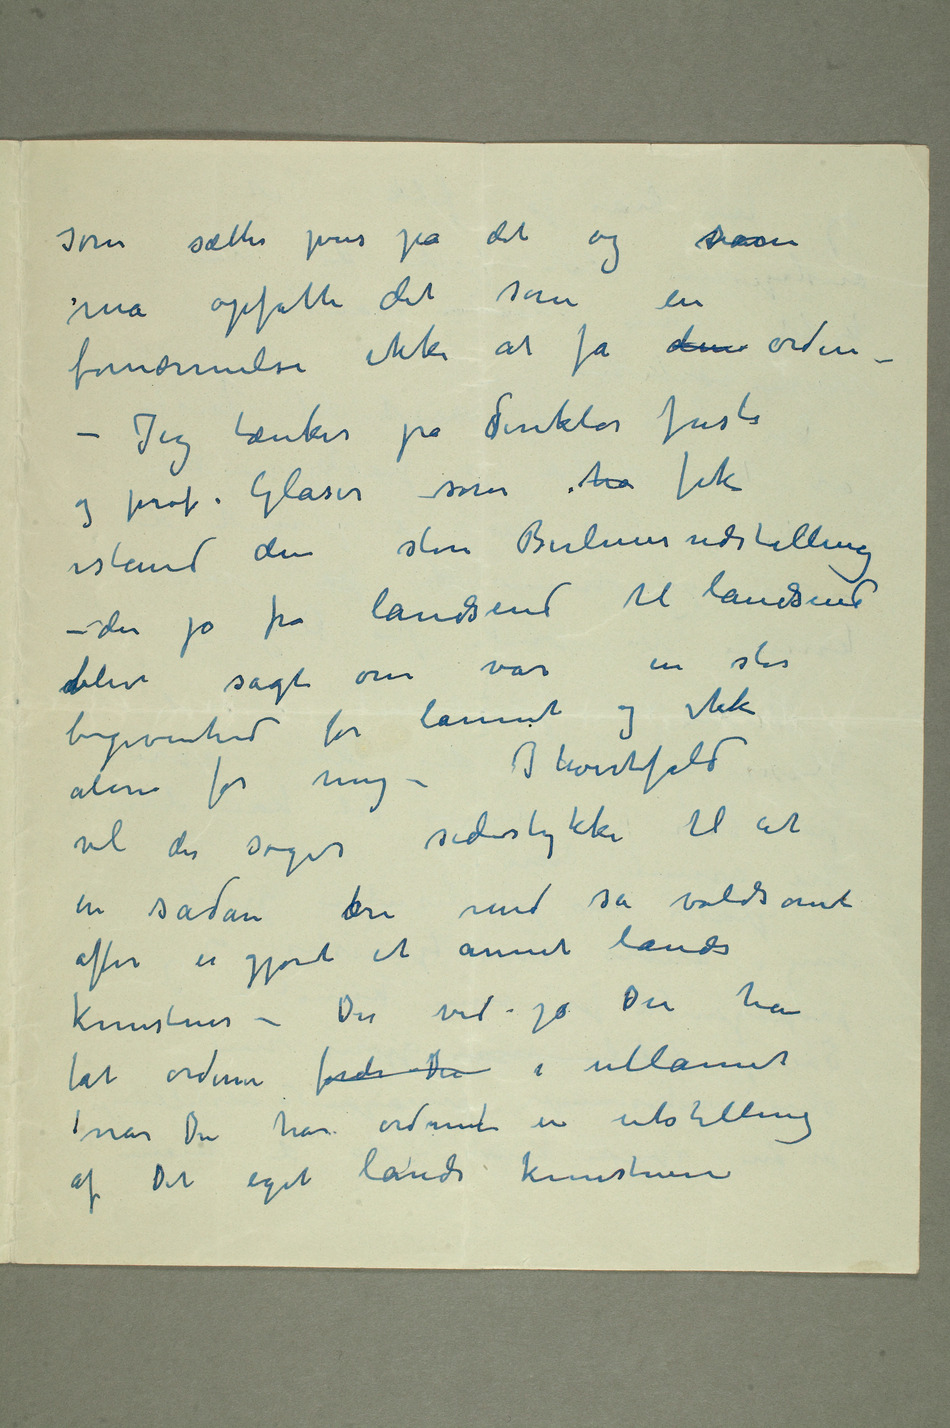 som sætter pris på det og som
må opfatte det som en
fornærmelse ikke at få den orden –
– Jeg tænker på direktør Justi
og prof. Glaser som ha fik
istand den store Berlinerudstilling
– der jo fra landsend til landsend
blev sagt om var en stor
begivenhed for lannet og ikke
alene for mig – I hvertfald
vil der søges sidestykke til at
en sådan ære med så voldsomt
offer er gjort et annet lands
kunstner – Der ved jo De har
fåt ordener fordi De i utlannet
når De har ordnet en utstilling
af Det eget lands kunstnere